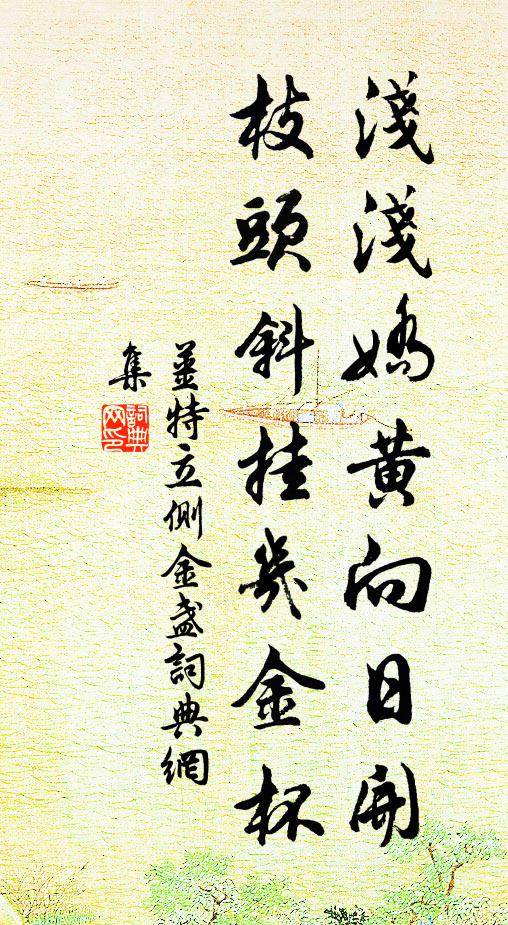 淺淺嬌黃向日開
枝頭斜挂幾金杯
姜特立側金盞詞典網
集
詞典網印